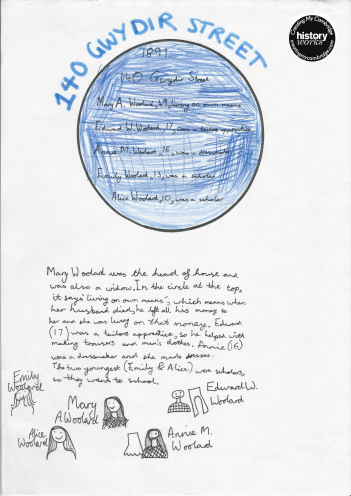 140 GWYDIR STREET
Creating My Cambridge
history
works
creatingmycambridge.com
1891
140 Gwydir Street
Mary A. Woolard, 49, living on own means
Edward W. Woolard, 17, was a tailors apprentice
Annie M. Woolard, 16, was a dressmaker
Emily Woolard, 13, was a scholar
Alice Woolard, 10, was a scholar
Mary Woolard was the head of house and
was also a widow. In the circle at the top,
it says 'living on own means', which means when
her husband died, he left all his money to
her and she was living on that money. Edward
(17) was a tailors apprentice, so he helped with
making trousers and men's clothes. Annie (16)
was a dressmaker and she made dresses.
The two youngest (Emily & Alice) were scholars,
so they went to school.
Emily
Woolard
Mary
A Woolard
Edward W.
Woolard
Alice
Woolard
Annie M.
Woolard